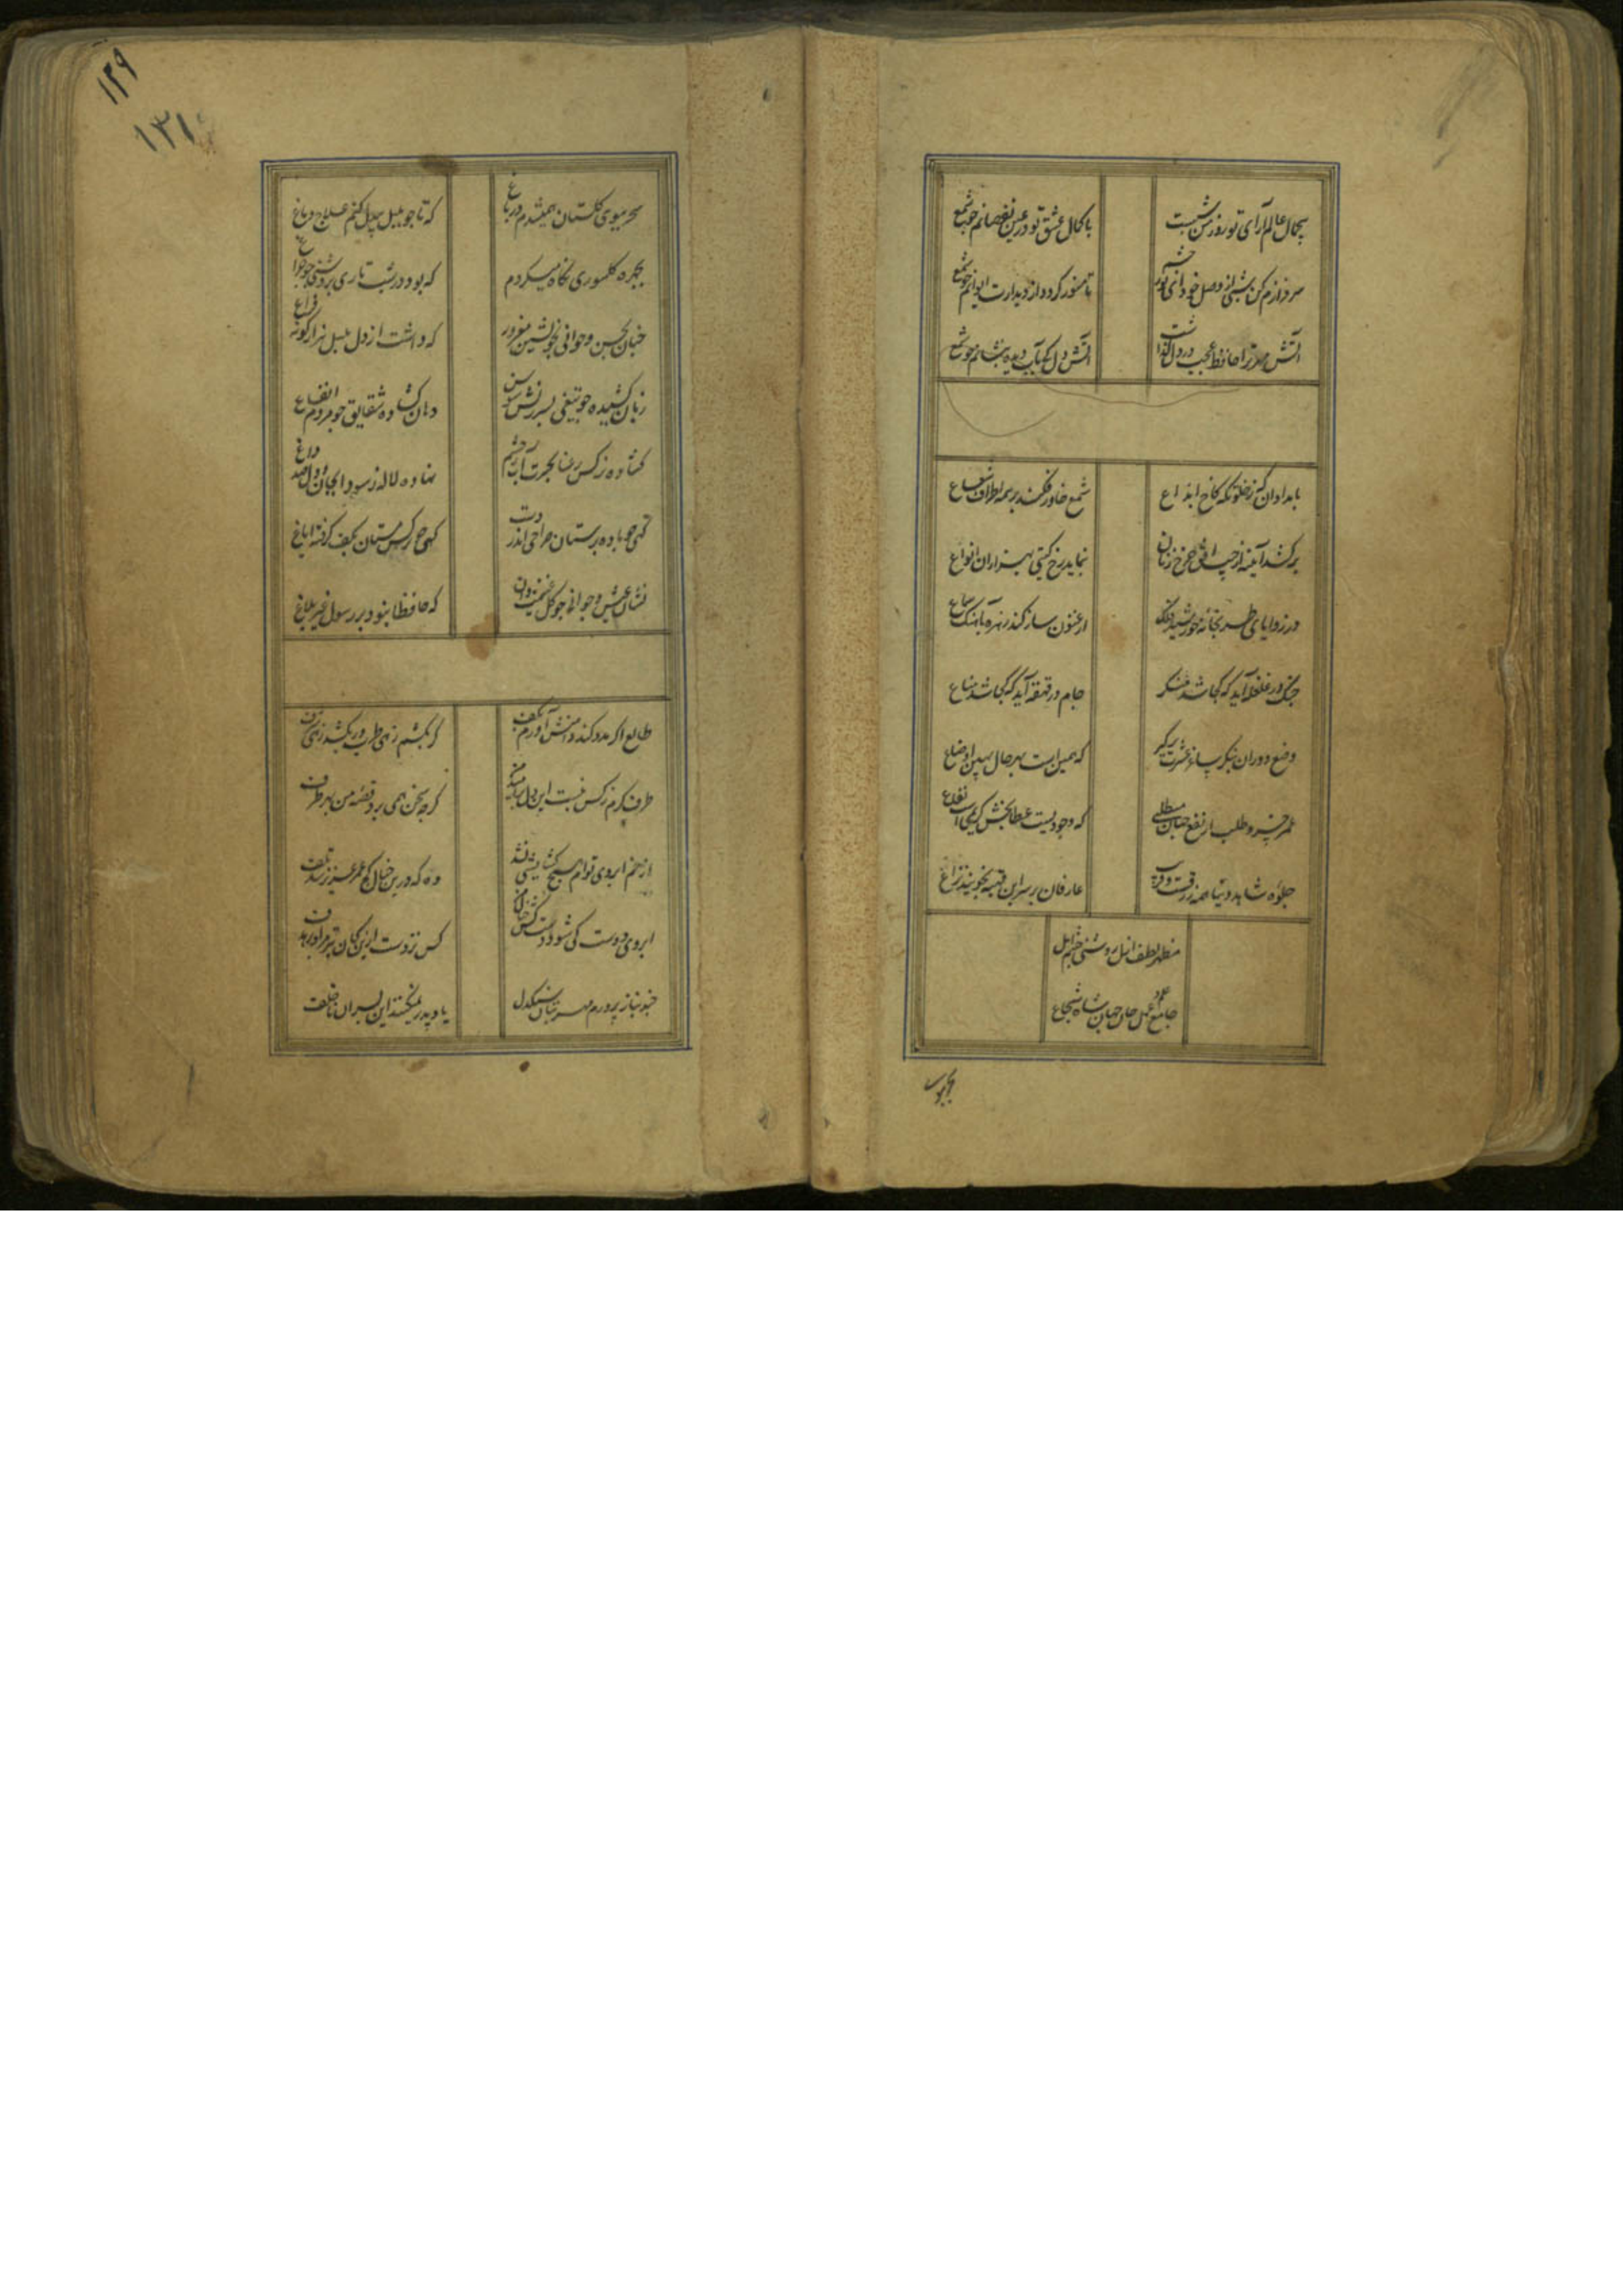 بی جمال عالم آرای تو روزم چون شبست
با کمال عشق تو در عین نقصانم چو شمع
سرفرازم کن شبی از وصل خود ای
تا منور کردد از دیدارت ایوانم چو شمع
آتش مهر ترا حافظ عجب در دل
آتش دل کی بآب دیده بنشانم چو شمع
بامدادان که ز خلوتکه کاخ ابداع
شمع خاور فکند بر همه اطراف شعاع
برکشد آینه از جیب افق چرخ زنان
بنماید رخ کیتی بهزاران انواع
در زوایای طربخانه خورشید فلک
ارغنون ساز کند زهره بآهنک سماع
چنک در غلغله آید که کجا شد منکر
جام در قهقهه آید که کجا شد مناع
وضع دوران بنکر ساغر عشرت برکیر
که بهر حال همین است بهین اوضاع
عمر خسرو طلب ار نفع جهان مطلبی
که وجودیست عطابخش کریمی نفاع
جلوه شاهد دنیا همه
عارفان بر سر این نجویند نزاع
مظهر لطف ازل روشنی چشم امل
جامع علم و عمل جان جهان شاه شجاع
۱۲۹
۱۳۱
سحر ببوی کلستان همیشدم در باغ
که تا چو بلبل بیدل کنم علاج دماغ
بچهره کل سوری نکاه میکردم
که بود در شب تاری بروشنی چو چراغ
چنان بحسن و جوانی خویشتن مغرور
که داشت از دل بلبل هزار کونه فراغ
زبان کشیده چو تیغی بسرزنش سوسن
دهان کشاده شقایق چو مردم ایغاغ
کشاده نرکس رعنا بحسرت آب ز چشم
نهاده لاله ز سودا بجان و دل صد داغ
کهی چو باده پرستان صراحی اندر دست
کهی چو نرکس مستان بکف کرفته ایاغ
نشاط و عیش و جوانی چو کل غنیمت دان
که حافظا نبود بر رسول غیر بلاغ
طالع اکر مدد کند دامنش آورم بکف
کر بکشم زهی طرب ور بکشد زهی شرف
طرف کرم ز کس نبست این دل
کرچه سخن همی برد قصه من بهر طرف
از خم ابروی توام هیچ کشایشی نشد
وه که درین خیال کج عمر عزیز شد تلف
ابروی دوست کی شود دستکش خیال من
کس نزدست ازین کمان تیر مراد بر هدف
چند بناز پرورم مهر بتان سنکدل
یاد پدر نمیکنند این پسران ناخلف